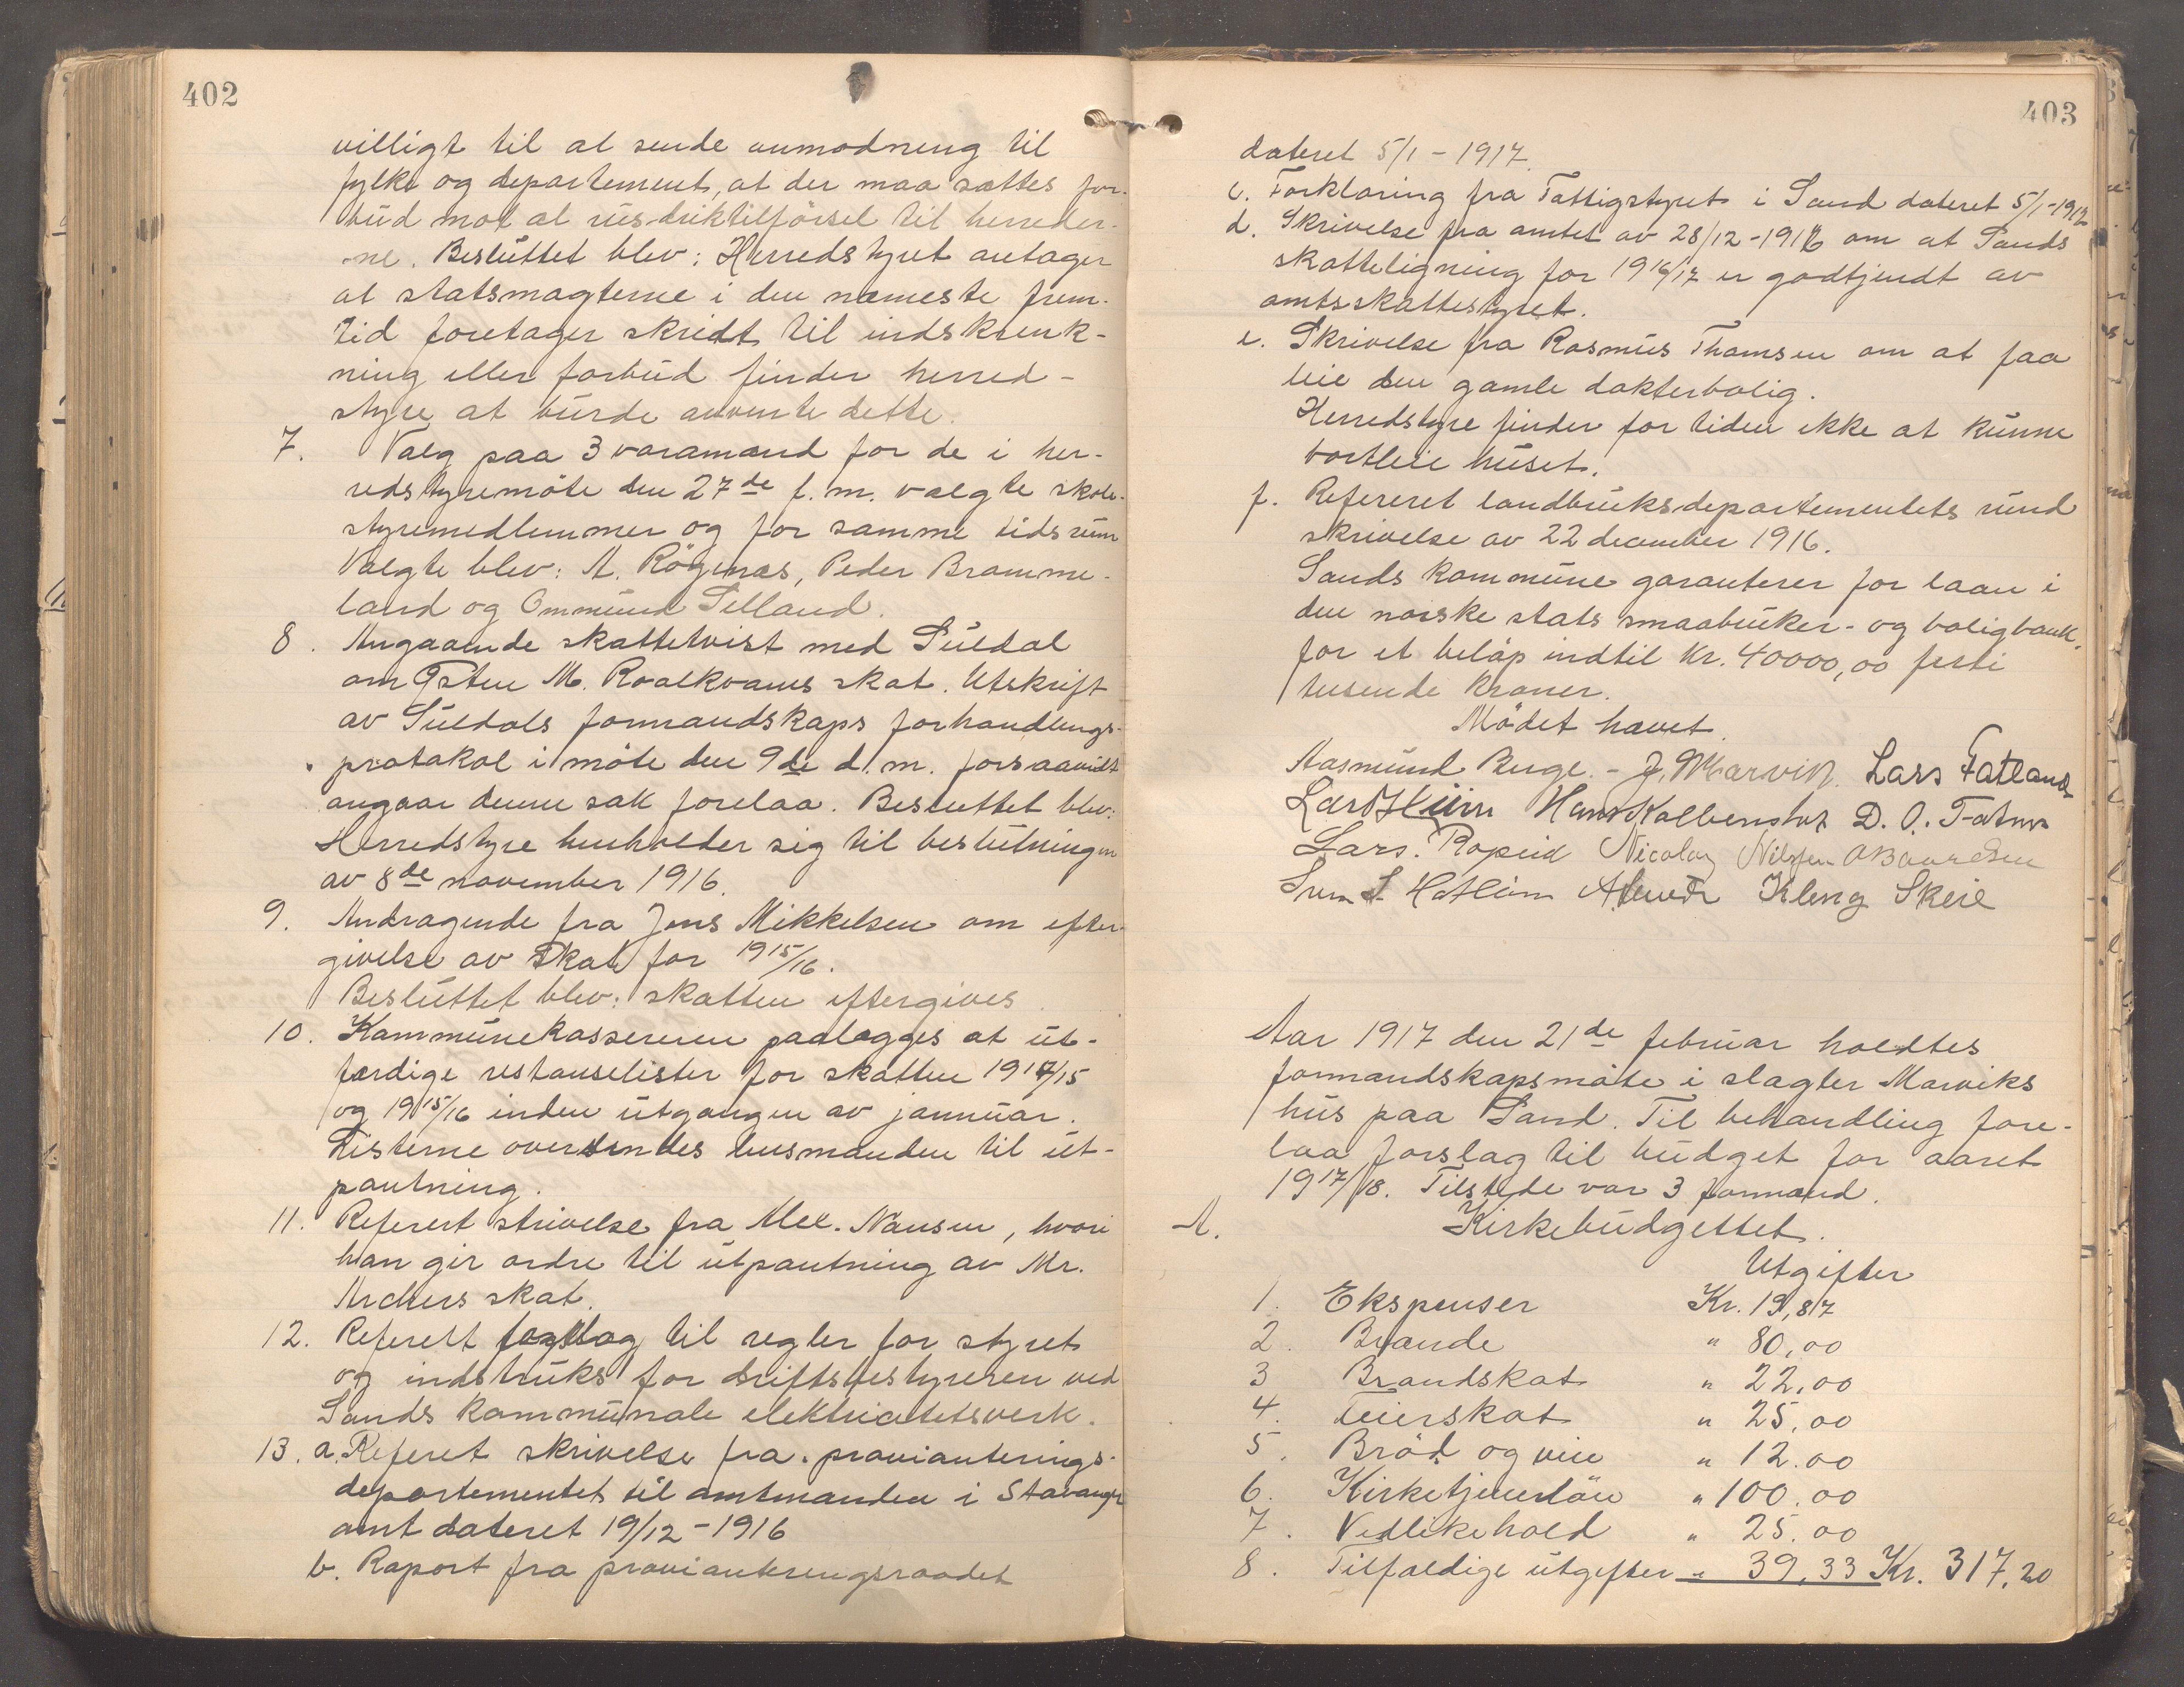 402
villigt til at sende anmodning til
fylke og departement, at der maa sættes for-
bud mot al rusdriktilförsel til herreder-
ne. Besluttet blev: Herredstyret antager
at statsmagterne i den nærmeste frem-
tid foretager skridt til indskrænk-
ning eller forbud finder herred-
styre at burde avvente dette.
7. Valg paa 3 varamænd for de i her-
redstyremöte den 27de f. m. valgte skole-
styremedlemmer og for samme tidsrum
Valgte blev: A. Rögenæs, Peder Bramme-
land og Ommund Selland.
8. Angaaende skattetvist med Suldal
om Östen M. Roalkvams skat. Utskrift
av Suldals formandskaps forhandlings-
protokol i möte den 9de d. m. forsaavidt
angaar denne sak forelaa. Besluttet blev:
Herredstyre henholder sig til beslutningen
av 8de november 1916.
9. Andragende fra Jens Mikkelsen om efter-
givelse av skat for 1915/16.
Besluttet blev: skatten eftergives
10. Kommunekassereren paalægges at ut-
færdige restanselister for skatten 1914/15
og 1915/16 inden utgangen av januar.
Listerne oversendes lensmanden til ut-
pantning.
11. Referert skrivelse fra Alex. Nansen, hvori
han gir ordre til utpantning av Mr.
Archers skat.
12. Referert forslag til regler for styret
og indstruks for driftsbestyreren ved
Sands kommunale elektricitetsverk.
13. a. Referet skrivelse fra provianterings-
departementet til amtmanden i Stavanger
amt dateret 19/12-1916
b. Raport fra provianteringsraadet
403
dateret 5/1-1917
c. Forklaring fra Fattigstyret i Sand dateret 5/1-1917
d. Skrivelse fra amtet av 28/12-1916 om at Sands
skatteligning for 1916/17 er godkjendt av
amtsskattestyret.
e. Skrivelse fra Rasmus Thomsen om at faa
leie den gamle dokterbolig.
Herredstyre finder for tiden ikke at kunne
bortleie huset.
f. Refereret landbruksdepartementets rund
skrivelse av 22 december 1916.
Sands kommune garanterer for laan i
den norske stats smaabruker- og boligbank,
for et belöp indtil Kr. 40000,00 förti
tusende kroner.
Mödet hævet.
Aasmund Runge. - J. Marvik Lars Fatland
Lars Heim Hans Kolbenstvt D. O. Fatnes
Lars. Ropeid Nicolay Nilssen O Baardsen
Sven S. Hatleim Kleng Skeie
Aar 1917 den 21de februar holdtes
formandskapsmöte i slagter Marviks
hus paa Sand. Til behandling fore-
laa forslag til budget for aaret
1917/18. Tilstede var 3 formænd.
A. Kirkebudgettet.
Utgifter
1. Ekspenser Kr. 13,87
2. Brænde " 80,00
3 Brandskat " 22,00
4. Feierskat " 25,00
5. Bröd og vin " 12.00
6. Kirketjenerlön " 100.00
7. Vedlikehold " 25.00
8. Tilfældige utgifter " 39,33 Kr. 317,20